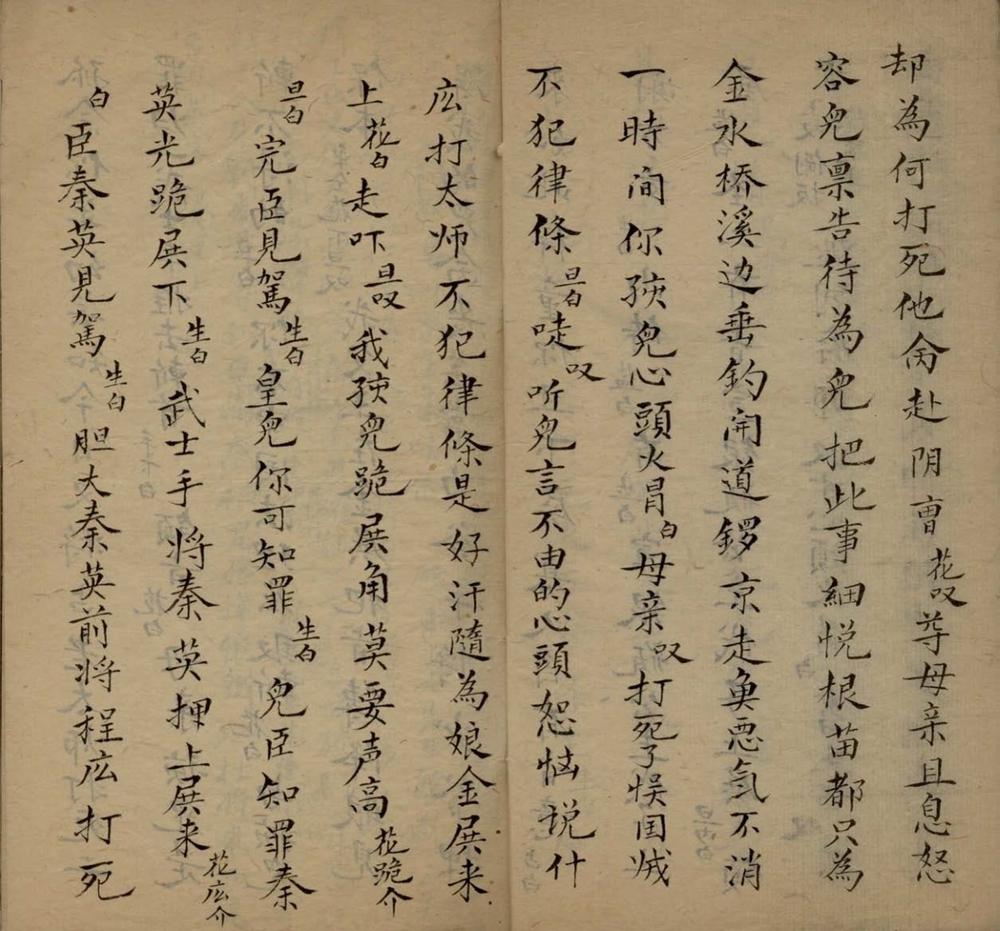 却為何打死他命赴阴曹花叹尊母亲且息怒
容兒禀告待為兒把此事細悦根苗都只為
金水桥溪边垂钓開道鑼京走魚恶氣不消
一時间你孩兒心頭火冒白母亲叹打死了悮国戝
不犯律條旦白唗叹听兒言不由的心頭怒恼说什
庅打太师不犯律條是好汗隨為娘金展来
上花白走吓旦叹我孩兒跪展角莫要声高花跪介
旦白完臣見駕生白皇兒你可知罪生白兒臣知罪秦
英光跪展下生白武士手将秦英押上展来花庅介
白臣秦英見駕生白胆大秦英前将程庅打死